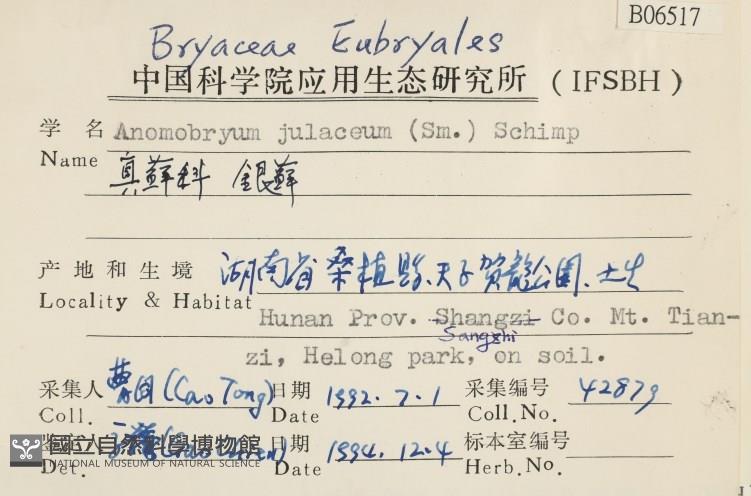 B06517
Bryaceae Eubryales
中国科学院应用生态研究所 (IFSBH)
学 名 Anomobryum julaceum (Sm.) Schimp
Name 真蘚科 銀蘚
产 地 和 生 境 湖南省桑植县、天子贺龍公園、土生
Locality & Habitat
Hunan Prov. Shangzi Co. Mt. Tian-
Sangzhi
zi, Helong park, on soil.
采集人 曹同(Cao Tong) 日期 1992.7.1 采集编号 42879
Coll. Date Coll.No.
日期 1994.12.4 标本室编号
Det. Date Herb.No.
國立自然科學博物館
NATIONAL MUSEUM OF NATURAL SCIENCE